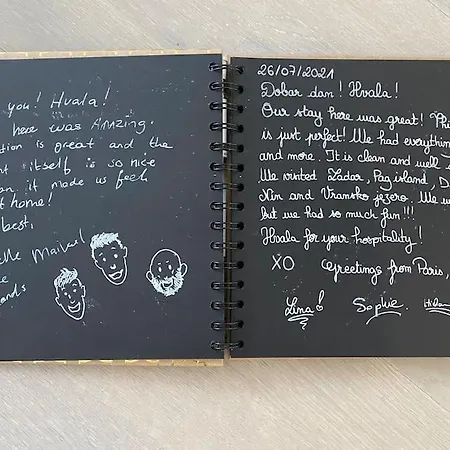 you! Hvala!
here was AMAZING.
tion is great and the
nt itself is so nice
on it made us feel
t home!
best,
lle
ands
26/07/2021
Dobar dan! Hvala!
Our stay here was great!
is just perfect! We had everything
and more. It is clean and well
We visited Zadar, Pag island, D
Nin and Vransko jezero. We w
but we had so much fun!!!
Hvala for your hospitality!
XO Greetings from Paris,
Lina Sophie.